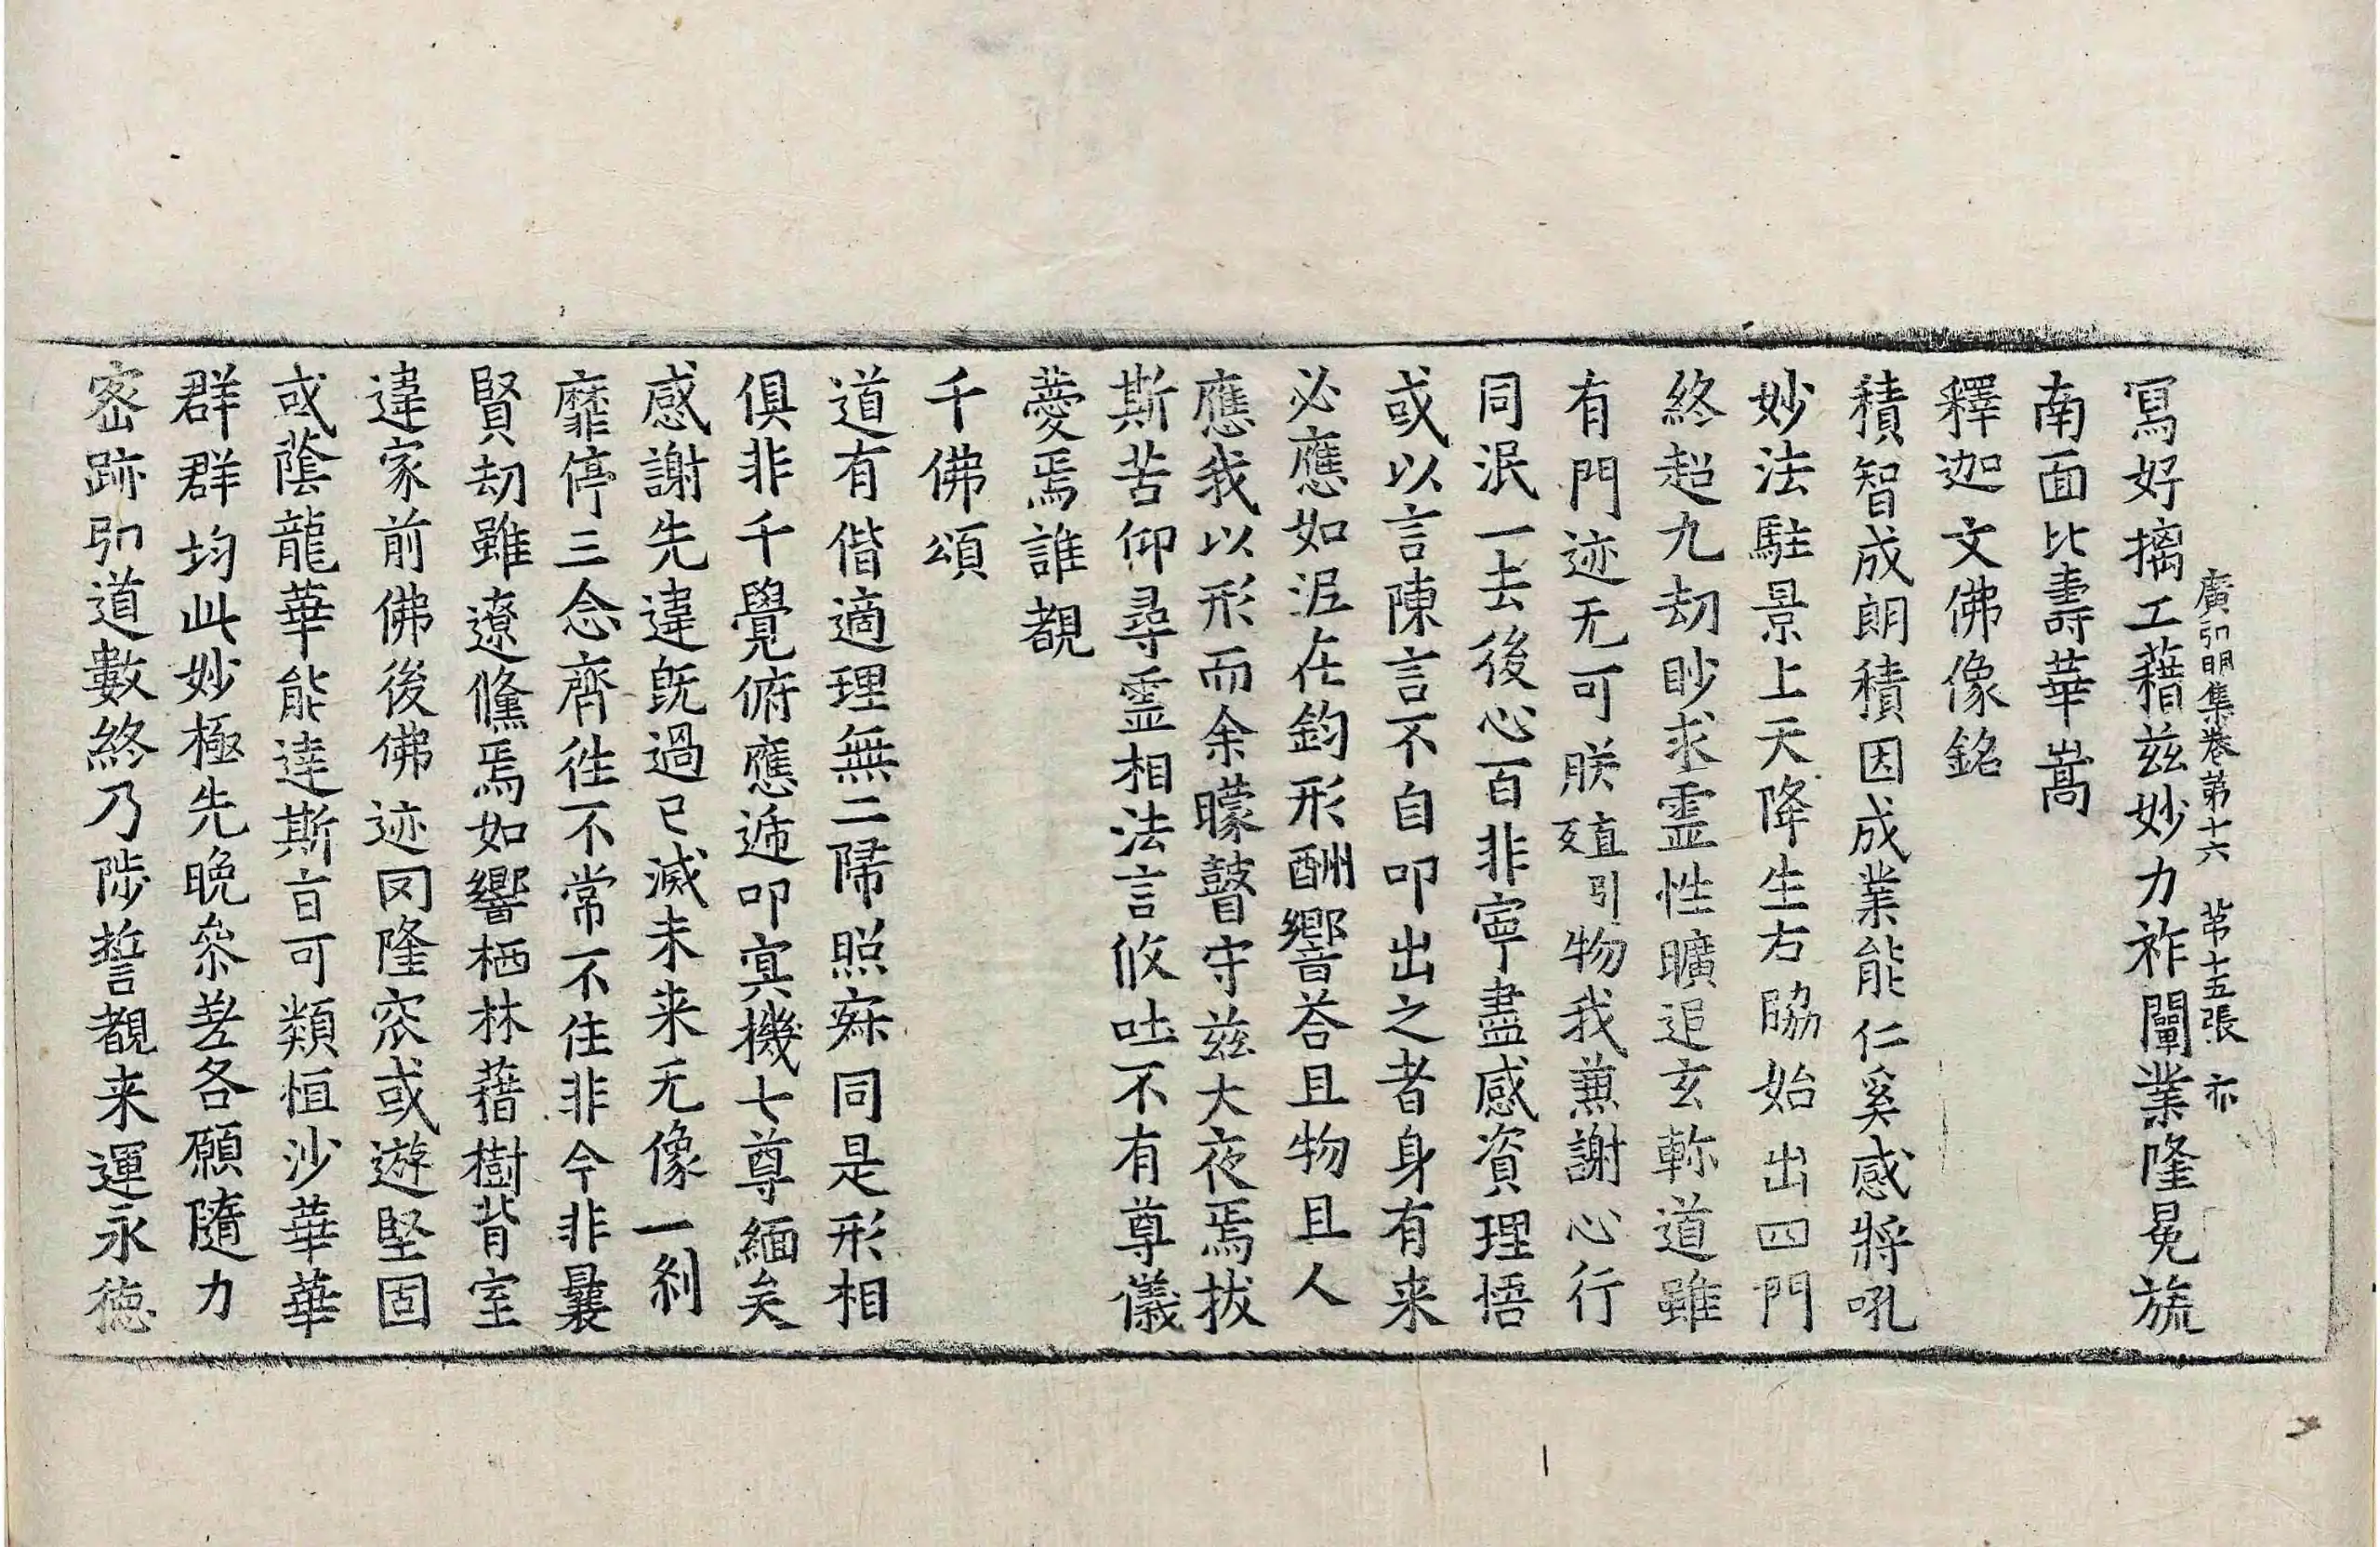 廣弘明集卷第十六　苐十五張　亦
冩好摛工藉兹妙力祚闡業隆冕旒
南面比壽華嵩
釋迦文佛像銘
積智成朗積因成業能仁奚感將吼
妙法駐景上天降生右脇始出四門
終超九劫眇求霊性曠追玄軫道雖
有門迹无可朕殖引物我兼謝心行
同泯一去後心百非寧盡感資理悟
或以言陳言不自叩出之者身有来
必應如泥在鈞形酬響荅且物且人
應我以形而余矇瞽守兹大夜焉拔
斯苦仰尋霊相法言攸吐不有尊儀
薆焉誰覩
千佛頌
道有偕適理無二歸照寂同是形相
俱非千覺俯應遞叩冥機七尊緬矣
感謝先違旣過已滅未来无像一刹
靡停三念齊徃不常不住非今非曩
賢劫雖遼儵焉如響栖林藉樹背室
違家前佛後佛迹罔隆窊或遊堅固
或蔭龍華能達斯㫖可類恒沙華華
群群均此妙極先晚叅差各願隨力
密跡弘道數終乃陟誓覩来運永徳